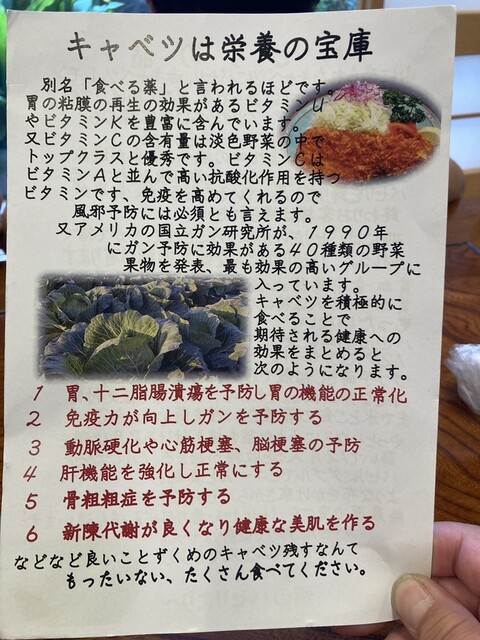 キャベツは栄養の宝庫
別名「食べる薬」と言われるほどです。
胃の粘膜の再生の効果があるビタミンU
やビタミンKを豊富に含んでいます。
又ビタミンCの含有量は淡色野菜の中で
トップクラスと優秀です。ビタミンCは
ビタミンAと並んで高い抗酸化作用を持つ
ビタミンです、免疫を高めてくれるので
風邪予防には必須とも言えます。
又アメリカの国立ガン研究所が、1990年
にガン予防に効果がある40種類の野菜
果物を発表、最も効果の高いグループに
入っています。
キャベツを積極的に
食べることで
期待される健康への
効果をまとめると
次のようになります。
1 胃、十二脂腸潰瘍を予防し胃の機能の正常化
2 免疫力が向上しガンを予防する
3 動脈硬化や心筋梗塞、脳梗塞の予防
4 肝機能を強化し正常にする
5 骨粗粗症を予防する
6 新陳代謝が良くなり健康な美肌を作る
などなど良いことずくめのキャベツ残すなんて
もったいない、たくさん食べてください。